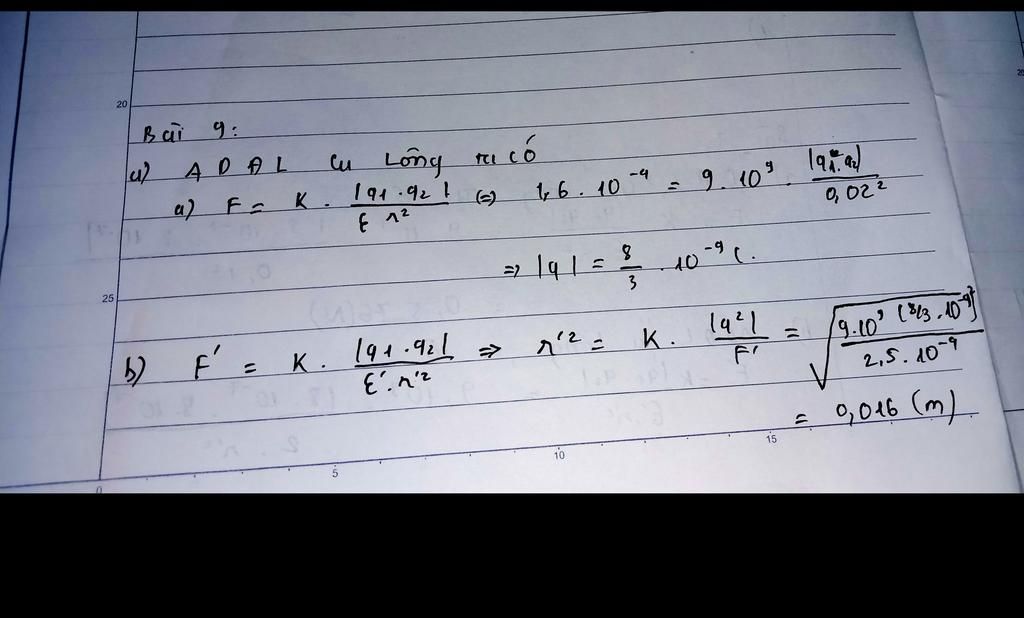 20
Bài 9:
a) A D Đ L Cu Lông ta có
a) F = K . |q1 . q2| / ε r² (=) 1,6 . 10⁻⁴ = 9 . 10⁹ . |q1 . q2| / 0,02²
=> |q| = 8/3 . 10⁻⁹ C.
25
b) F' = K . |q1 . q2| / ε' . r'² => r'² = K . |q²| / F' = √(9.10⁹ (8/3 . 10⁻⁹)² / 2,5 . 10⁻⁴)
= 0,016 (m)
0 5 10 15